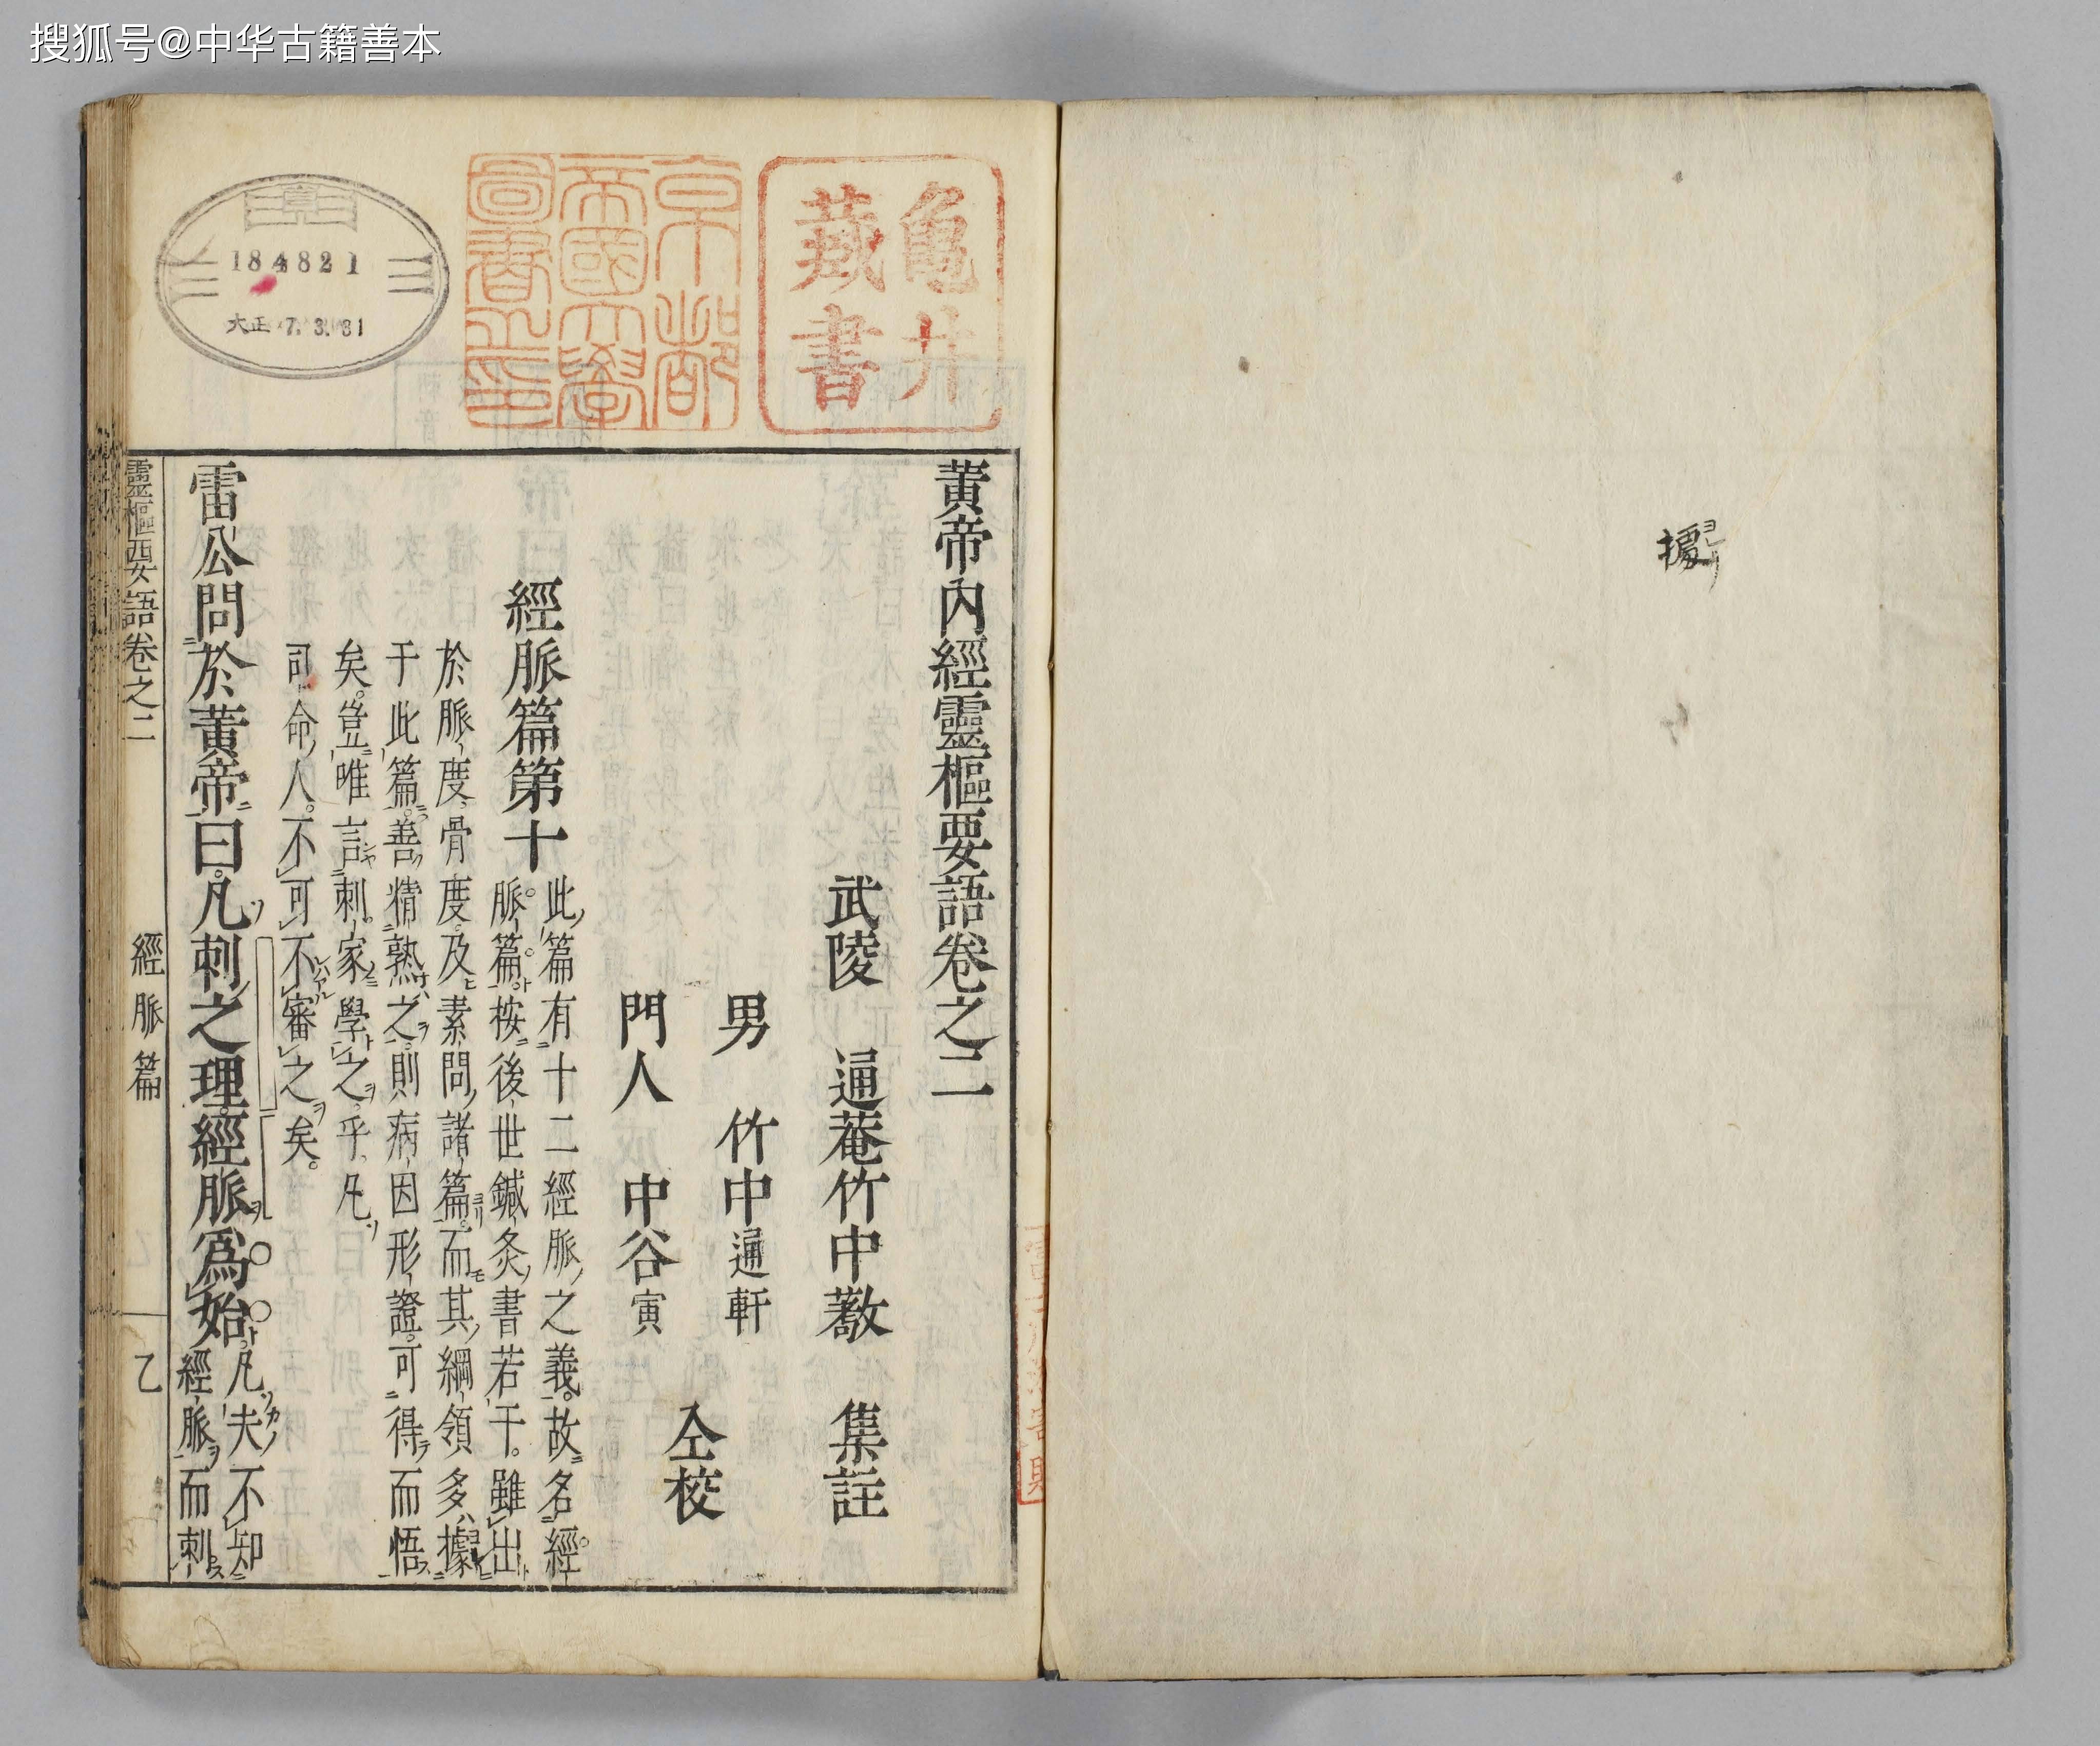 搜狐号@中华古籍善本
據
ヨレリ
亀井
藏書
京都
帝國大學
圖書之印
184821
大正 7.3.31
黃帝內經靈樞要語卷之二
武陵 通菴竹中敬 集註
男 竹中通軒
門人 中谷寅
仝校
經脈篇第十
此篇有十二經脈之義。故名經
脈篇。按後世鍼灸書若干。雖出
於脈度骨度。及素問諸篇。而其綱領多據
于此篇。善精熟之。則病因形證。可得而悟
矣。豈唯言刺家學之乎。凡
司命人。不可不審之矣。
雷公問於黃帝曰。凡刺之理。經脈爲始。
凡夫不知
經脈而刺
靈樞要語卷之二
經脈篇
乙